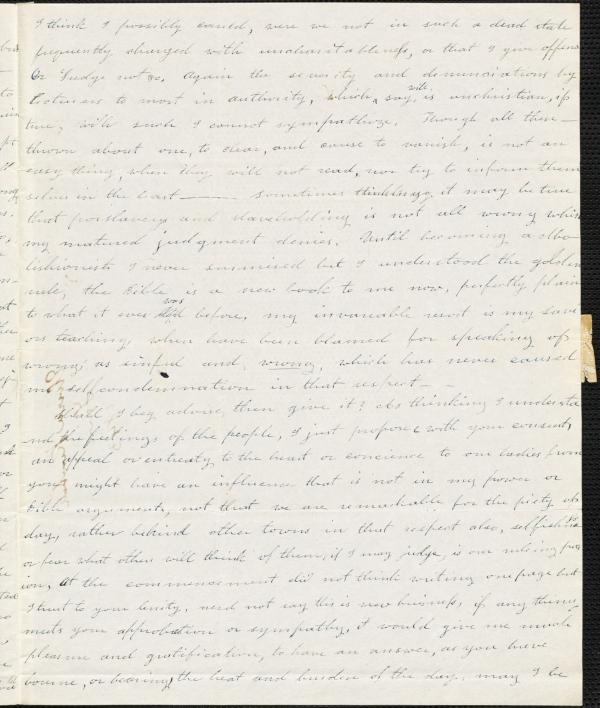 I think I possibly could, were we not in such a dead state
frequently charged with uncharitableness, or that I give offens
Or Judge not &c, Again the severity and denunciations by
lecturers to most in authority, which, say, is unchristian, if
true, with such I cannot sympathize. Though all these —
thrown about one, to clear, and cause to vanish, is not an
easy thing, when they will not read, nor try to inform them
selves in the least —— sometimes it may be true
that proslavery and slaveholding is not all wrong which
my matured judgment denies. Until becoming a abo
litionist I never surmised but I understood the golden
rule, the Bible is a new book to me now, perfectly plain
to what it ever was before, my invariable resort is my Savi
ors teaching, when have been blamed for speaking of
wrong as sinful and, wrong, which has never caused
me selfcondemnation in that respect —
Shall I beg advice then give it? As thinking I understa
nd the feelings of the people, I just propose with your consent,
an appeal or entreaty to the heart or concience to our ladies from
you might have an influence that is not in my power or
Bible arguments, not that we are remarkable for the piety of
day, rather behind other towns in that respect also, selfishness
or fear what others will think of them, if I may judge, is our ruling pass
ion, At the commencement did not think writing one page but
I trust to your lenity, need not say this is new business, if any thing
meets your approbation or sympathy, it would give me much
pleasure and gratification, to have an answer, as you have
bourne, or bearing the heat and burden of the day, may I be